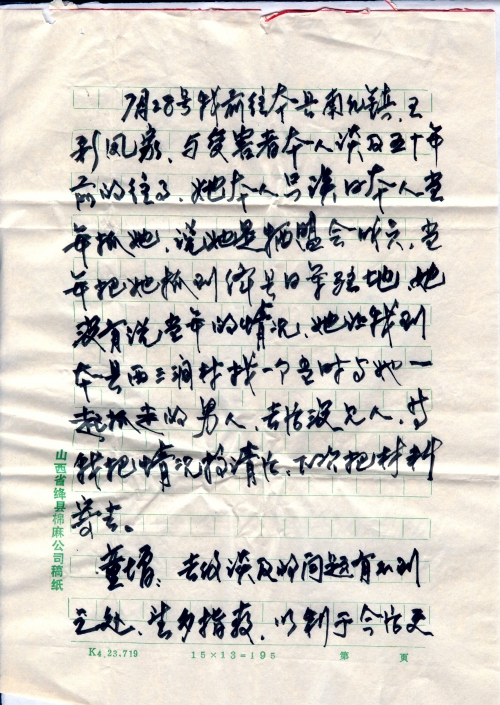 7月28号我前往本县南凡镇,王
利凤家,与受害者本人谈及五十年
前的往事,她本人只谈日本人当
年抓她,说她是牺盟会成员,当
年把她抓到绛县日军驻地,她
没有说当年的情况,她让我到
本县西三涧村找一个当时与她一
起抓来的男人,去后没见人,待
我把情况搞清后,下次把材料
寄去。
董增:去后谈及的问题有不到
之处,望多指教,以利于今后更
山西省绛县棉麻公司稿纸
K4.23.719 15×13=195 第 页